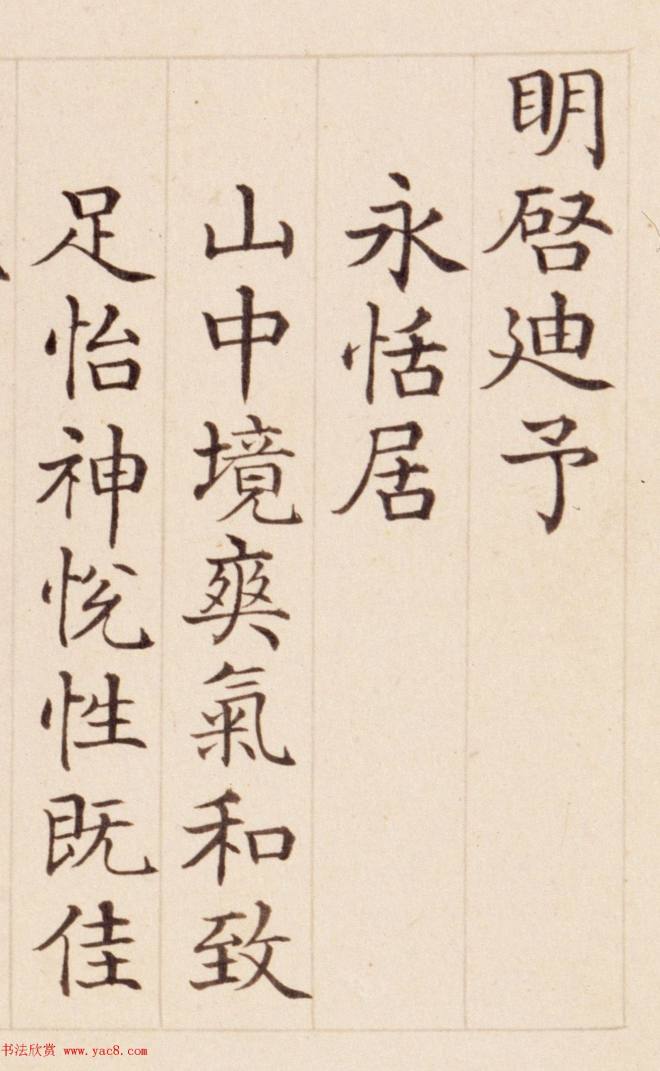 明啓迪予
永恬居
山中境爽氣和致
足怡神悅性既佳
书法欣赏 www.yac8.com